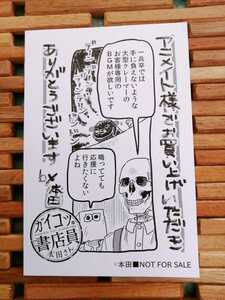 アニメイト様でお買い上げいただき
ありがとうございます by 本田
一兵卒では
手に負えないような
大型クレーマーの
お客様専用の
BGMが欲しいです
鳴ってても
応援に
行きたくない
よね
ガイコツ
書店員
本田さん
©本田■NOT FOR SALE